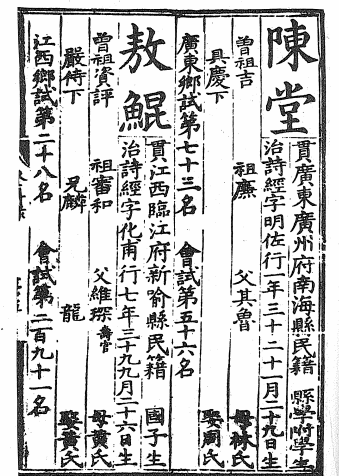 陳堂
貫廣東廣州府南海縣民籍 縣學附學生
治詩經字明佐行一年三十二十一月二十九日生
曾祖吉 祖廉 父其魯 母林氏
具慶下 娶周氏
廣東鄉試第七十三名 會試第五十六名
敖鯤
貫江西臨江府新喻縣民籍 國子生
治詩經字化甫行七年三十九九月二十六日生
曾祖資評 祖審和 父維琛壽官 母黃氏
嚴侍下 兄麟 龍 娶黃氏
江西鄉試第二十八名 會試第二百九十一名